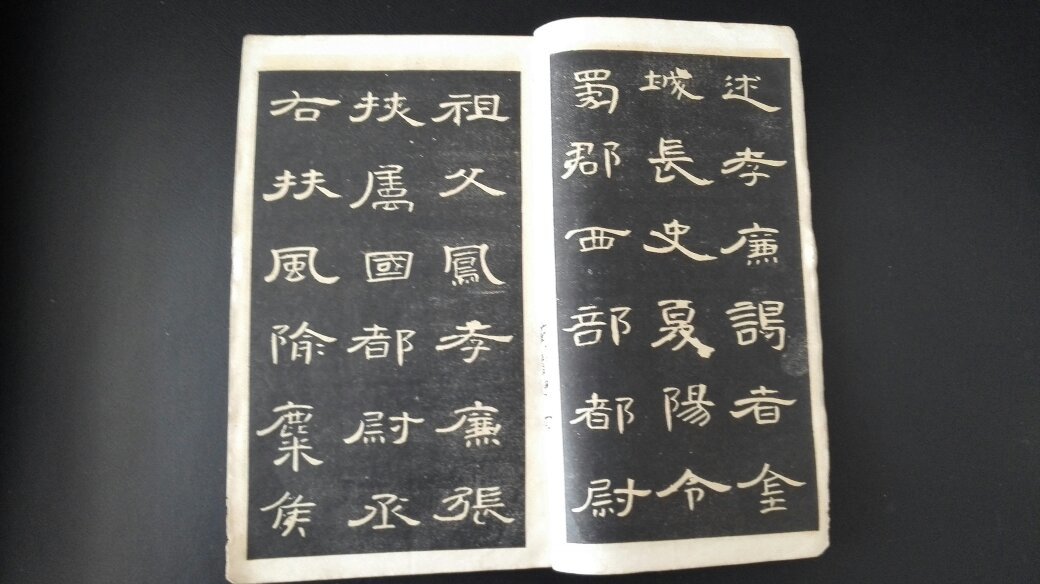 述孝廉謁者金
城長史夏陽令
蜀郡西部都尉
祖父鳳孝廉張
掖屬國都尉丞
右扶風隃麋侯